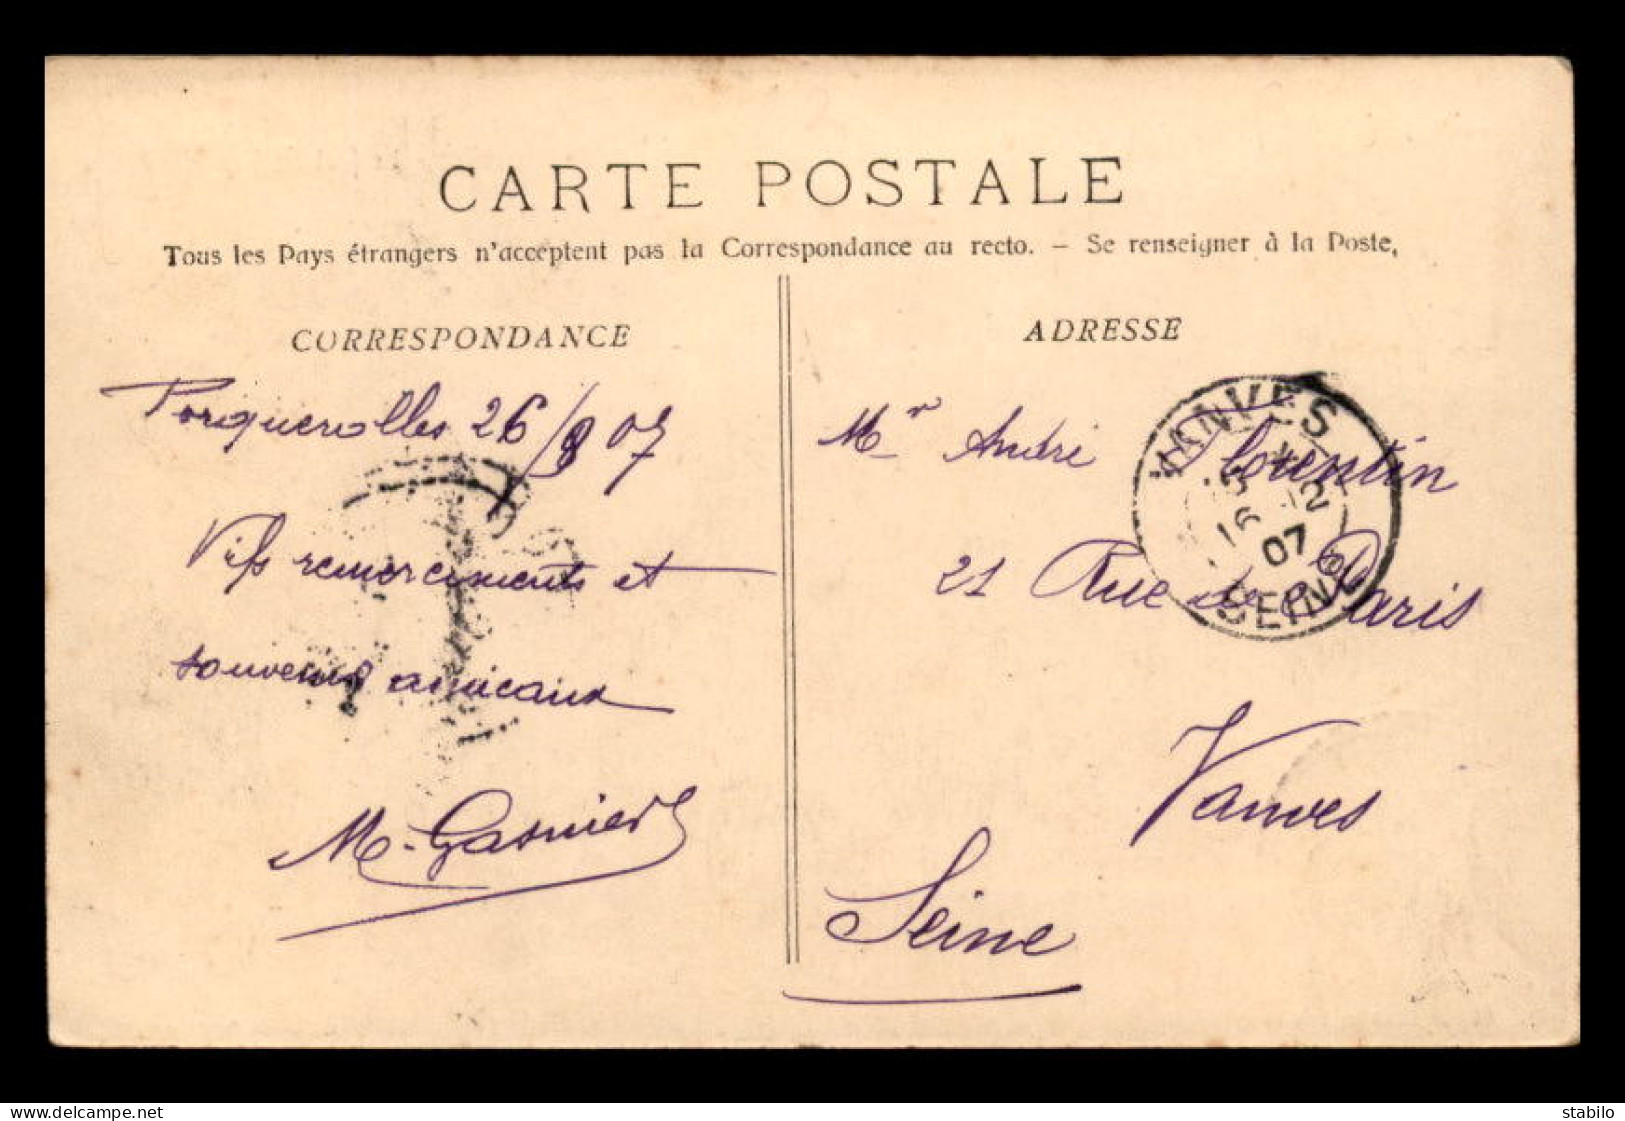 CARTE POSTALE
Tous les Pays étrangers n'acceptent pas la Correspondance au recto. — Se renseigner à la Poste,
CORRESPONDANCE
Porquerolles 26/8 07
Vifs remerciements et
souvenirs amicaux
M. Gasnier
ADRESSE
Mr André Florentin
21 Rue de Paris
Vanves
Seine
VANVES
12
16
07
SEINE
www.delcampe.net
stabilo